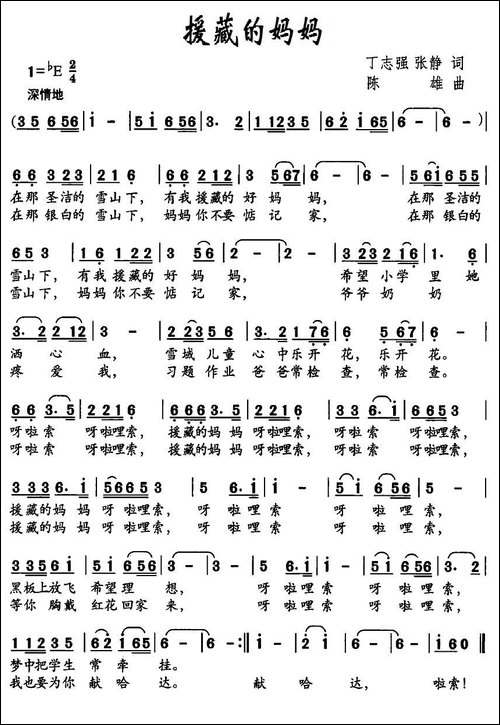 援藏的妈妈
1=♭E 2/4
丁志强 张静 词
陈 雄 曲
深情地
(35 656 | i - | 5i 656 | 3. 2 | 11235 | 62 i65 | 6 - | 6 - )
66 323 | 216 | 66 212 | 3 567 | 6 - | 6 - | 56i 655 |
在那 圣洁的 雪山下, 有我 援藏的 好 妈 妈, 在那 圣洁的
在那 银白的 雪山下, 妈妈 你不要 惦 记 家, 在那 银白的
653 | 16 122 | 3 56 | 2 - | 2 - | 323 216 | 1. 6 |
雪山下, 有我 援藏的 好 妈 妈, 希望 小学 里 她
雪山下, 妈妈 你不要 惦 记 家, 爷爷 奶 奶
3. 2 2 12 | 3 - | 323 216 | 2. 3 176 | 6 5 67 | 6 - |
洒 心 血, 雪域 儿童 心 中乐开 花, 乐开 花。
疼 爱 我, 习题 作业 爸 爸常检 查, 常检 查。
66 3.5 | 2216 | 666 3.5 | 2216 | 333 6.i | 6653 |
呀啦 索 呀啦哩索, 援藏的妈 妈 呀啦哩索, 援藏的妈 妈 呀啦索
呀啦 索 呀啦哩索, 援藏的妈 妈 呀啦哩索, 援藏的妈 妈 呀啦索
333 6.i | 56653 | 5 6.i | i - | 5i 656 |
援藏的妈 妈 呀 啦哩索, 呀 啦哩 索 呀 啦哩索,
援藏的妈 妈 呀 啦哩索, 呀 啦哩 索 呀 啦哩索,
33356 | 5i 656 | 3 - | 3 - | 5 6.i | i - | 5i 656 |
黑板上放飞 希望 理 想, 呀 啦哩 索, 呀 啦哩索,
等你 胸戴 红花 回家 来, 呀 啦哩 索, 呀 啦哩索,
11235 | 62 i65 | 6 - | 6 - :| i 2 | i 2 | 6 - | 6 - | i60 ‖
梦中把学生 常 牵 挂。
我也要为你 献 哈 达。 献 哈 达, 啦索!